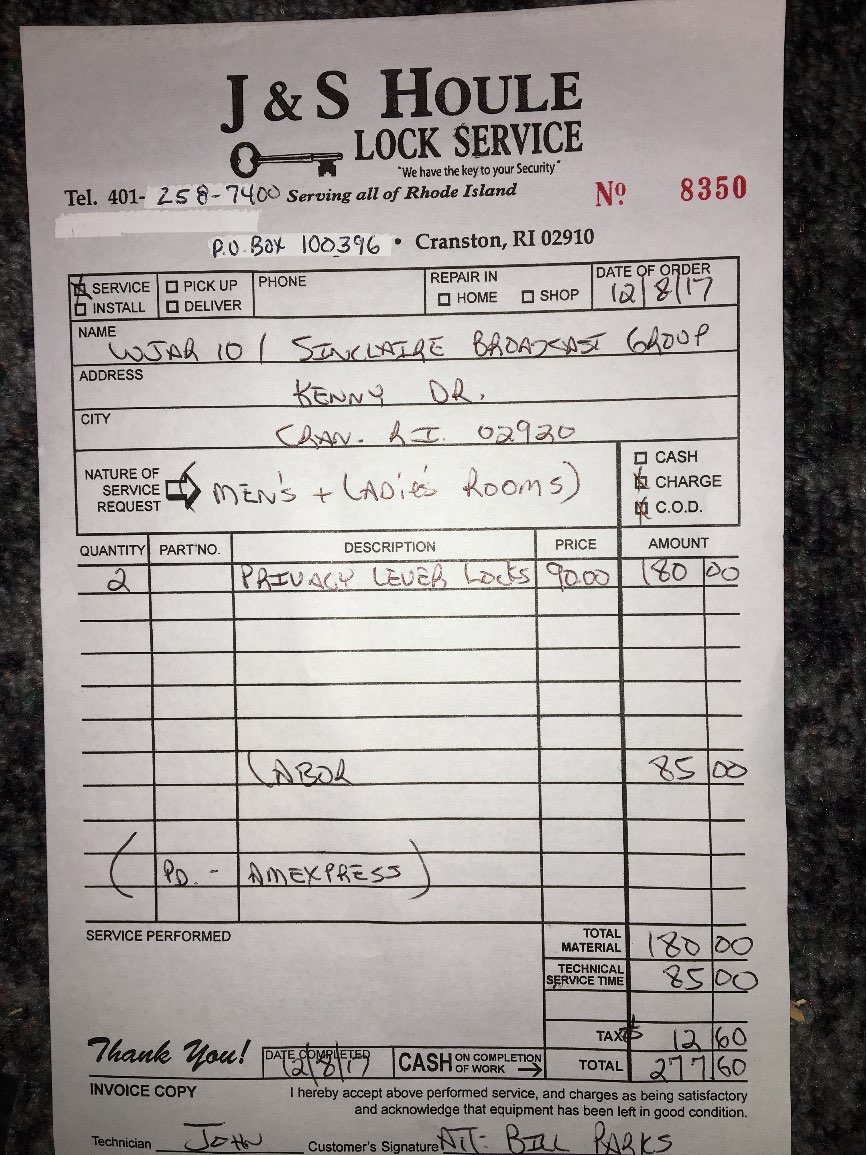 J & S HOULE
LOCK SERVICE
"We have the key to your Security"
Tel. 401- 258-7400 Serving all of Rhode Island Nº 8350
P.O. BOX 100396 • Cranston, RI 02910
SERVICE PICK UP PHONE REPAIR IN DATE OF ORDER
INSTALL DELIVER HOME SHOP 12/8/17
NAME
WJAR 10 / SINCLAIRE BROADCAST GROUP
ADDRESS
KENNY DR.
CITY
CRAN. R.I. 02920
NATURE OF SERVICE REQUEST MEN'S + LADIE'S ROOMS)
CASH
CHARGE
C.O.D.
QUANTITY PART NO. DESCRIPTION PRICE AMOUNT
2 PRIVACY LEVER LOCKS 90.00 180 00
LABOR 85 00
(PD. - AMEXPRESS)
SERVICE PERFORMED
TOTAL MATERIAL 180 00
TECHNICAL SERVICE TIME 85 00
TAX 12 60
Thank You! DATE COMPLETED 12/8/17 CASH ON COMPLETION OF WORK TOTAL 277 60
INVOICE COPY I hereby accept above performed service, and charges as being satisfactory
and acknowledge that equipment has been left in good condition.
Technician JOHN Customer's Signature ATT: BILL PARKS